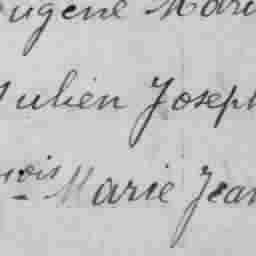 Eugène Mari
Julien Joseph
nois Marie Jean